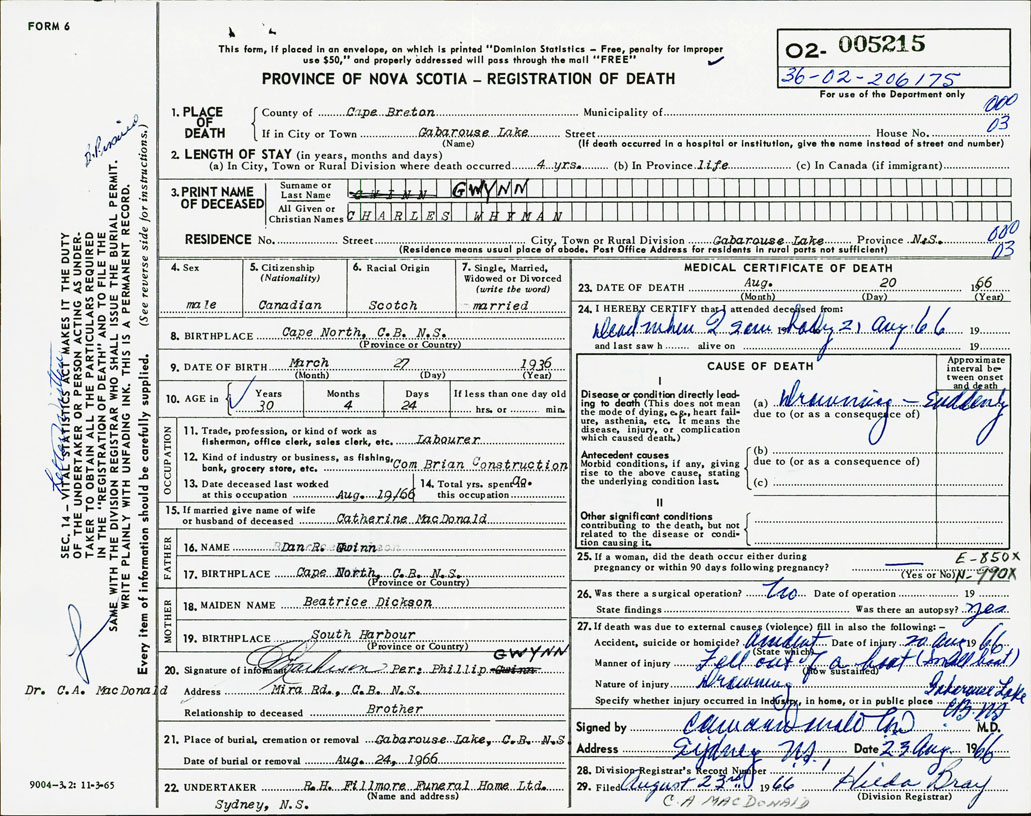 FORM 6
This form, if placed in an envelope, on which is printed "Dominion Statistics – Free, penalty for improper
use $50," and properly addressed will pass through the mail "FREE"
PROVINCE OF NOVA SCOTIA – REGISTRATION OF DEATH
O2- 005215
36-02-206175
For use of the Department only
1. PLACE OF DEATH
County of Cape Breton Municipality of
000
If in City or Town Gabarouse Lake Street House No. 03
(Name) (If death occurred in a hospital or institution, give the name instead of street and number)
2. LENGTH OF STAY (in years, months and days)
(a) In City, Town or Rural Division where death occurred 4 yrs. (b) In Province life (c) In Canada (if immigrant)
3. PRINT NAME OF DECEASED
Surname or Last Name GWINN GWYNN
All Given or Christian Names CHARLES WHYMAN
RESIDENCE No. Street City, Town or Rural Division Gabarouse Lake Province N.S. 000
(Residence means usual place of abode. Post Office Address for residents in rural parts not sufficient) 03
4. Sex
male
5. Citizenship
(Nationality)
Canadian
6. Racial Origin
Scotch
7. Single, Married,
Widowed or Divorced
(write the word)
married
8. BIRTHPLACE Cape North, C.B. N.S.
(Province or Country)
9. DATE OF BIRTH March 27 1936
(Month) (Day) (Year)
10. AGE in
Years Months Days If less than one day old
30 4 24 hrs. or min.
OCCUPATION
11. Trade, profession, or kind of work as
fisherman, office clerk, sales clerk, etc. Labourer
12. Kind of industry or business, as fishing,
bank, grocery store, etc. Com Brian Construction
13. Date deceased last worked
at this occupation Aug. 19/66
14. Total yrs. spent
this occupation
15. If married give name of wife
or husband of deceased Catherine MacDonald
FATHER
16. NAME Dan R. Gwinn
17. BIRTHPLACE Cape North, C.B. N.S.
(Province or Country)
MOTHER
18. MAIDEN NAME Beatrice Dickson
19. BIRTHPLACE South Harbour
(Province or Country)
GWYNN
20. Signature of informant Per: Phillip Gwinn
Dr. C.A. MacDonald
Address Mira Rd., C.B. N.S.
Relationship to deceased Brother
21. Place of burial, cremation or removal Gabarouse Lake, C.B. N.S
Date of burial or removal Aug. 24, 1966
22. UNDERTAKER R.H. Fillmore Funeral Home Ltd.
(Name and address)
Sydney, N.S.
MEDICAL CERTIFICATE OF DEATH
23. DATE OF DEATH Aug. 20 1966
(Month) (Day) (Year)
24. I HEREBY CERTIFY that I attended deceased from:
Dead when I saw body 21 Aug. 66 19
and last saw h alive on 19
CAUSE OF DEATH
Approximate
interval be-
tween onset
and death
I
Disease or condition directly lead-
ing to death (This does not mean
the mode of dying, e.g., heart fail-
ure, asthenia, etc. It means the
disease, injury, or complication
which caused death.)
(a) Drowning – Suddenly
due to (or as a consequence of)
Antecedent causes
Morbid conditions, if any, giving
rise to the above cause, stating
the underlying condition last.
(b)
due to (or as a consequence of)
(c)
II
Other significant conditions
contributing to the death, but not
related to the disease or condi-
tion causing it.
25. If a woman, did the death occur either during
pregnancy or within 90 days following pregnancy?
(Yes or No)
E-850X
N-990X
26. Was there a surgical operation? No Date of operation 19
State findings Was there an autopsy? Yes
27. If death was due to external causes (violence) fill in also the following:–
Accident, suicide or homicide? Accident Date of injury 20 Aug 1966
(State which)
Manner of injury Fell out of a boat (small boat)
(How sustained)
Nature of injury Drowning
Specify whether injury occurred in industry, in home, or in public place Gabarouse Lake
CB NS
Signed by M.D.
Address Sydney N.S. Date 23 Aug. 1966
28. Division Registrar's Record Number
29. Filed August 23rd 1966 Hilda Bray
C A MACDONALD (Division Registrar)
SEC. 14 – VITAL STATISTICS ACT MAKES IT THE DUTY
OF THE UNDERTAKER OR PERSON ACTING AS UNDER-
TAKER TO OBTAIN ALL THE PARTICULARS REQUIRED
IN THE "REGISTRATION OF DEATH" AND TO FILE THE
SAME WITH THE DIVISION REGISTRAR WHO SHALL ISSUE THE BURIAL PERMIT.
WRITE PLAINLY WITH UNFADING INK. THIS IS A PERMANENT RECORD.
Every item of information should be carefully supplied. (See reverse side for instructions.)
9004-3.2: 11-3-65